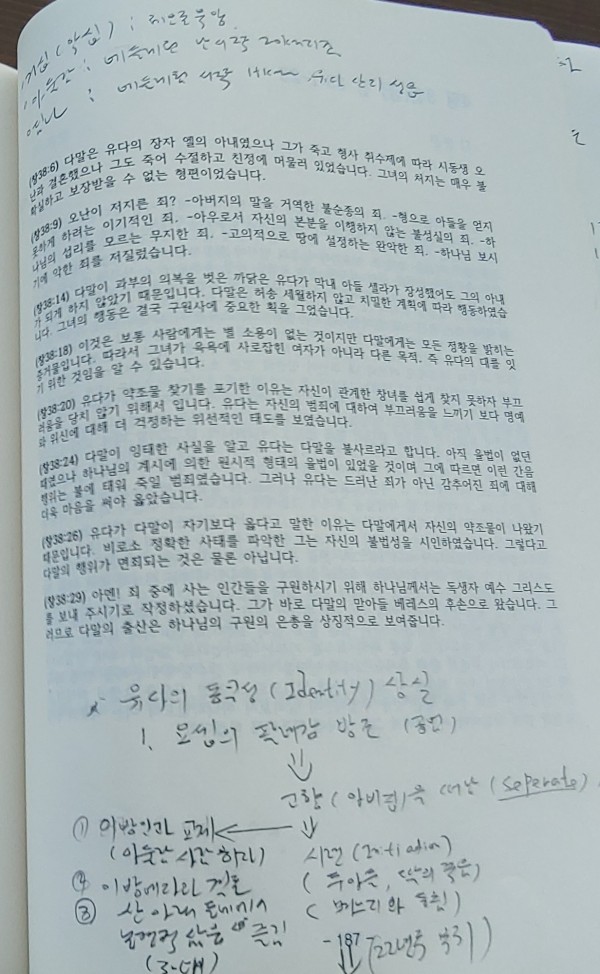 : 베들레헴 남서쪽 20km지점
(창38:6) 다말은 유다의 장자 엘의 아내였으나 그가 죽고 형사 취수제에 따라 시동생 오
난과 결혼했으나 그도 죽어 수절하고 친정에 머물러 있었습니다. 그녀의 처지는 매우 불
확실하고 보장받을 수 없는 형편이었습니다.
(창38:9) 오난이 저지른 죄? -아버지의 말을 거역한 불순종의 죄. -형으로 아들을 얻지
못하게 하려는 이기적인 죄. -아우로서 자신의 본분을 이행하지 않는 불성실의 죄. -하
나님의 섭리를 모르는 무지한 죄. -고의적으로 땅에 설정하는 완악한 죄. -하나님 보시
기에 악한 죄를 저질렀습니다.
(창38:14) 다말이 과부의 의복을 벗은 까닭은 유다가 막내 아들 셀라가 장성했어도 그의 아내
가 되게 하지 않았기 때문입니다. 다말은 허송 세월하지 않고 치밀한 계획에 따라 행동하였습
니다. 그녀의 행동은 결국 구원사에 중요한 획을 그었습니다.
(창38:18) 이것은 보통 사람에게는 별 소용이 없는 것이지만 다말에게는 모든 정황을 밝히는
증거물입니다. 따라서 그녀가 육욕에 사로잡힌 여자가 아니라 다른 목적, 즉 유다의 대를 잇
기 위한 것임을 알 수 있습니다.
(창38:20) 유다가 약조물 찾기를 포기한 이유는 자신이 관계한 창녀를 쉽게 찾지 못하자 부끄
러움을 당치 않기 위해서 입니다. 유다는 자신의 범죄에 대하여 부끄러움을 느끼기 보다 명예
와 위신에 대해 더 걱정하는 위선적인 태도를 보였습니다.
(창38:24) 다말이 잉태한 사실을 알고 유다는 다말을 불사르라고 합니다. 아직 율법이 없던
때였으나 하나님의 계시에 의한 원시적 형태의 율법이 있었을 것이며 그에 따르면 이런 간음
행위는 불에 태워 죽일 범죄였습니다. 그러나 유다는 드러난 죄가 아닌 감추어진 죄에 대해
더욱 마음을 써야 옳았습니다.
(창38:26) 유다가 다말이 자기보다 옳다고 말한 이유는 다말에게서 자신의 약조물이 나왔기
때문입니다. 비로소 정확한 사태를 파악한 그는 자신의 불법성을 시인하였습니다. 그렇다고
다말의 행위가 면죄되는 것은 물론 아닙니다.
(창38:29) 아멘! 죄 중에 사는 인간들을 구원하시기 위해 하나님께서는 독생자 예수 그리스도
를 보내 주시기로 작정하셨습니다. 그가 바로 다말의 맏아들 베레스의 후손으로 왔습니다. 그
러므로 다말의 출산은 하나님의 구원의 은총을 상징적으로 보여줍니다.
유다의 동국성 (Identity) 상실
1. 요셉의 팔려감 방관
고향 (아비집)을 떠남 (Seperate)
① 이방인과 교제
(아둘람 사람 히라) 시련
② 이방여자와 결혼 (두 아들, 아내 죽음)
③ 산 아래
- 187 -